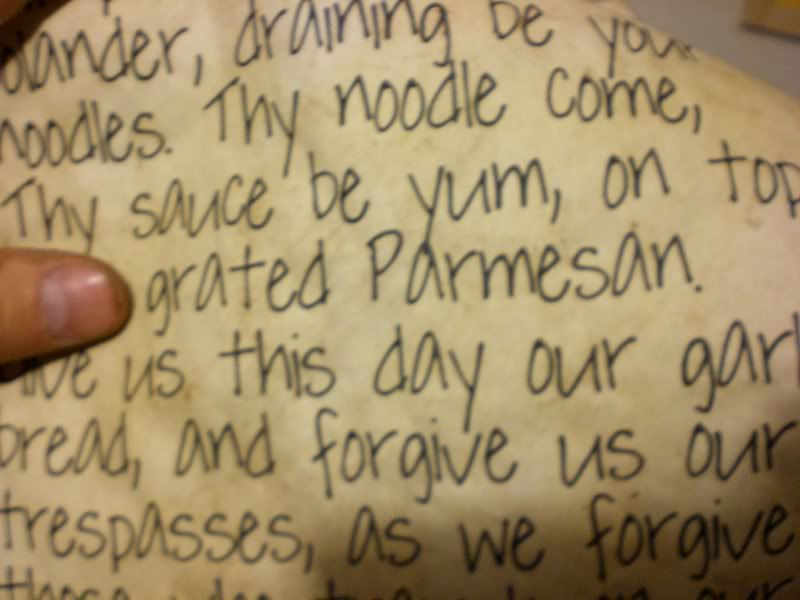 olander, draining be your
noodles. Thy noodle come,
Thy sauce be yum, on top
grated Parmesan.
ive us this day our garl
bread, and forgive us our
trespasses, as we forgive
those who